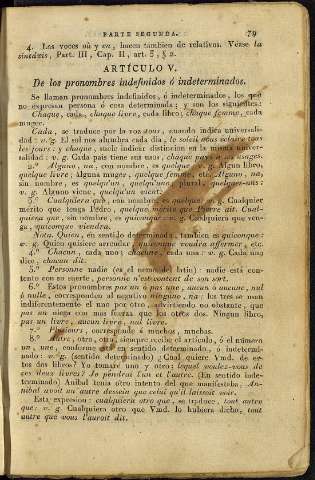 PARTE SEGUNDA. 79
4. Las voces où y en, hacen tambien de relativos. Véase la
sintáxis, Part. III, Cap. II, art. 5, § 2.
ARTÍCULO V.
De los pronombres indefinidos ó indeterminados.
Se llaman pronombres indefinidos, ó indeterminados, los que
no expresan persona ó cosa determinada; y son los siguientes:
Chaque, cada, chaque livre, cada libro; chaque femme, cada
muger.
Cada, se traduce por la voz tous, cuando indica universali-
dad: v. g. El sol nos alumbra cada dia, le soleil nous éclaire tous
les jours; y chaque, suele indicar distincion en la misma univer-
salidad: v. g. Cada pais tiene sus usos, chaque pays a ses usages.
2.º Alguno, na, con nombre, es quelque: v. g. Algun libro,
quelque livre; alguna muger, quelque femme, etc. Alguno, na,
sin nombre, es quelqu'un, quelqu'une, plural, quelques-uns:
v. g. Alguno viene, quelqu'un vient.
3.º Cualquiera que, con nombre, quelque: v. g. Cualquier
mérito que tenga Pedro, quelque mérite que Pierre ait. Cual-
quiera que, sin nombre, es quiconque: v. g. Cualquiera que ven-
ga, quiconque viendra.
Nota. Quien, en sentido indeterminado, tambien es quiconque:
v. g. Quien quisiere arriesgar, quiconque voudra affermer, etc.
4.º Chacun, cada uno; chacune, cada una: v. g. Cada uno
dice, chacun dit.
5.º Personne nadie (es el nemo del latin): nadie está con-
tento con su suerte, personne n'est content de son sort.
6.º Estos pronombres pas un pas une, aucun ó aucune, nul
ó nulle, corresponden al negativo ninguno, na: los tres se usan
indiferentemente el uno por otro, advirtiendo, no obstante, que
pas un niega con mas fuerza que los otros dos. Ningun libro,
pas un livre, aucun livre, nul livre.
7.º Plusieurs, corresponde á muchos, muchas.
8.º Autre, otro, otra, siempre recibe el artículo, ó el número
un, une, conforme esté en sentido determinado, ó indetermi-
nado: v. g. (sentido determinado) ¿Cual quiere Vmd. de es-
tos dos libros? Yo tomaré uno y otro; lequel voulez-vous de
ces deux livres? Je prendrai l'un et l'autre. (En sentido inde-
terminado) Aníbal tenia otro intento del que manifestaba, An-
nibal avoit un autre dessein que celui qu'il laissoit voir.
Esta expresion: cualquiera otro que, se traduce, tout autre
que: v. g. Cualquiera otro que Vmd. lo hubiera dicho, tout
autre que vous l'auroit dit.